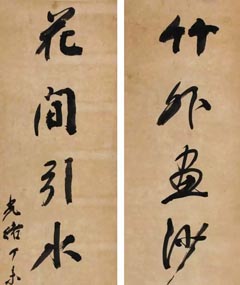 竹外画沙
花间引水
光绪丁未